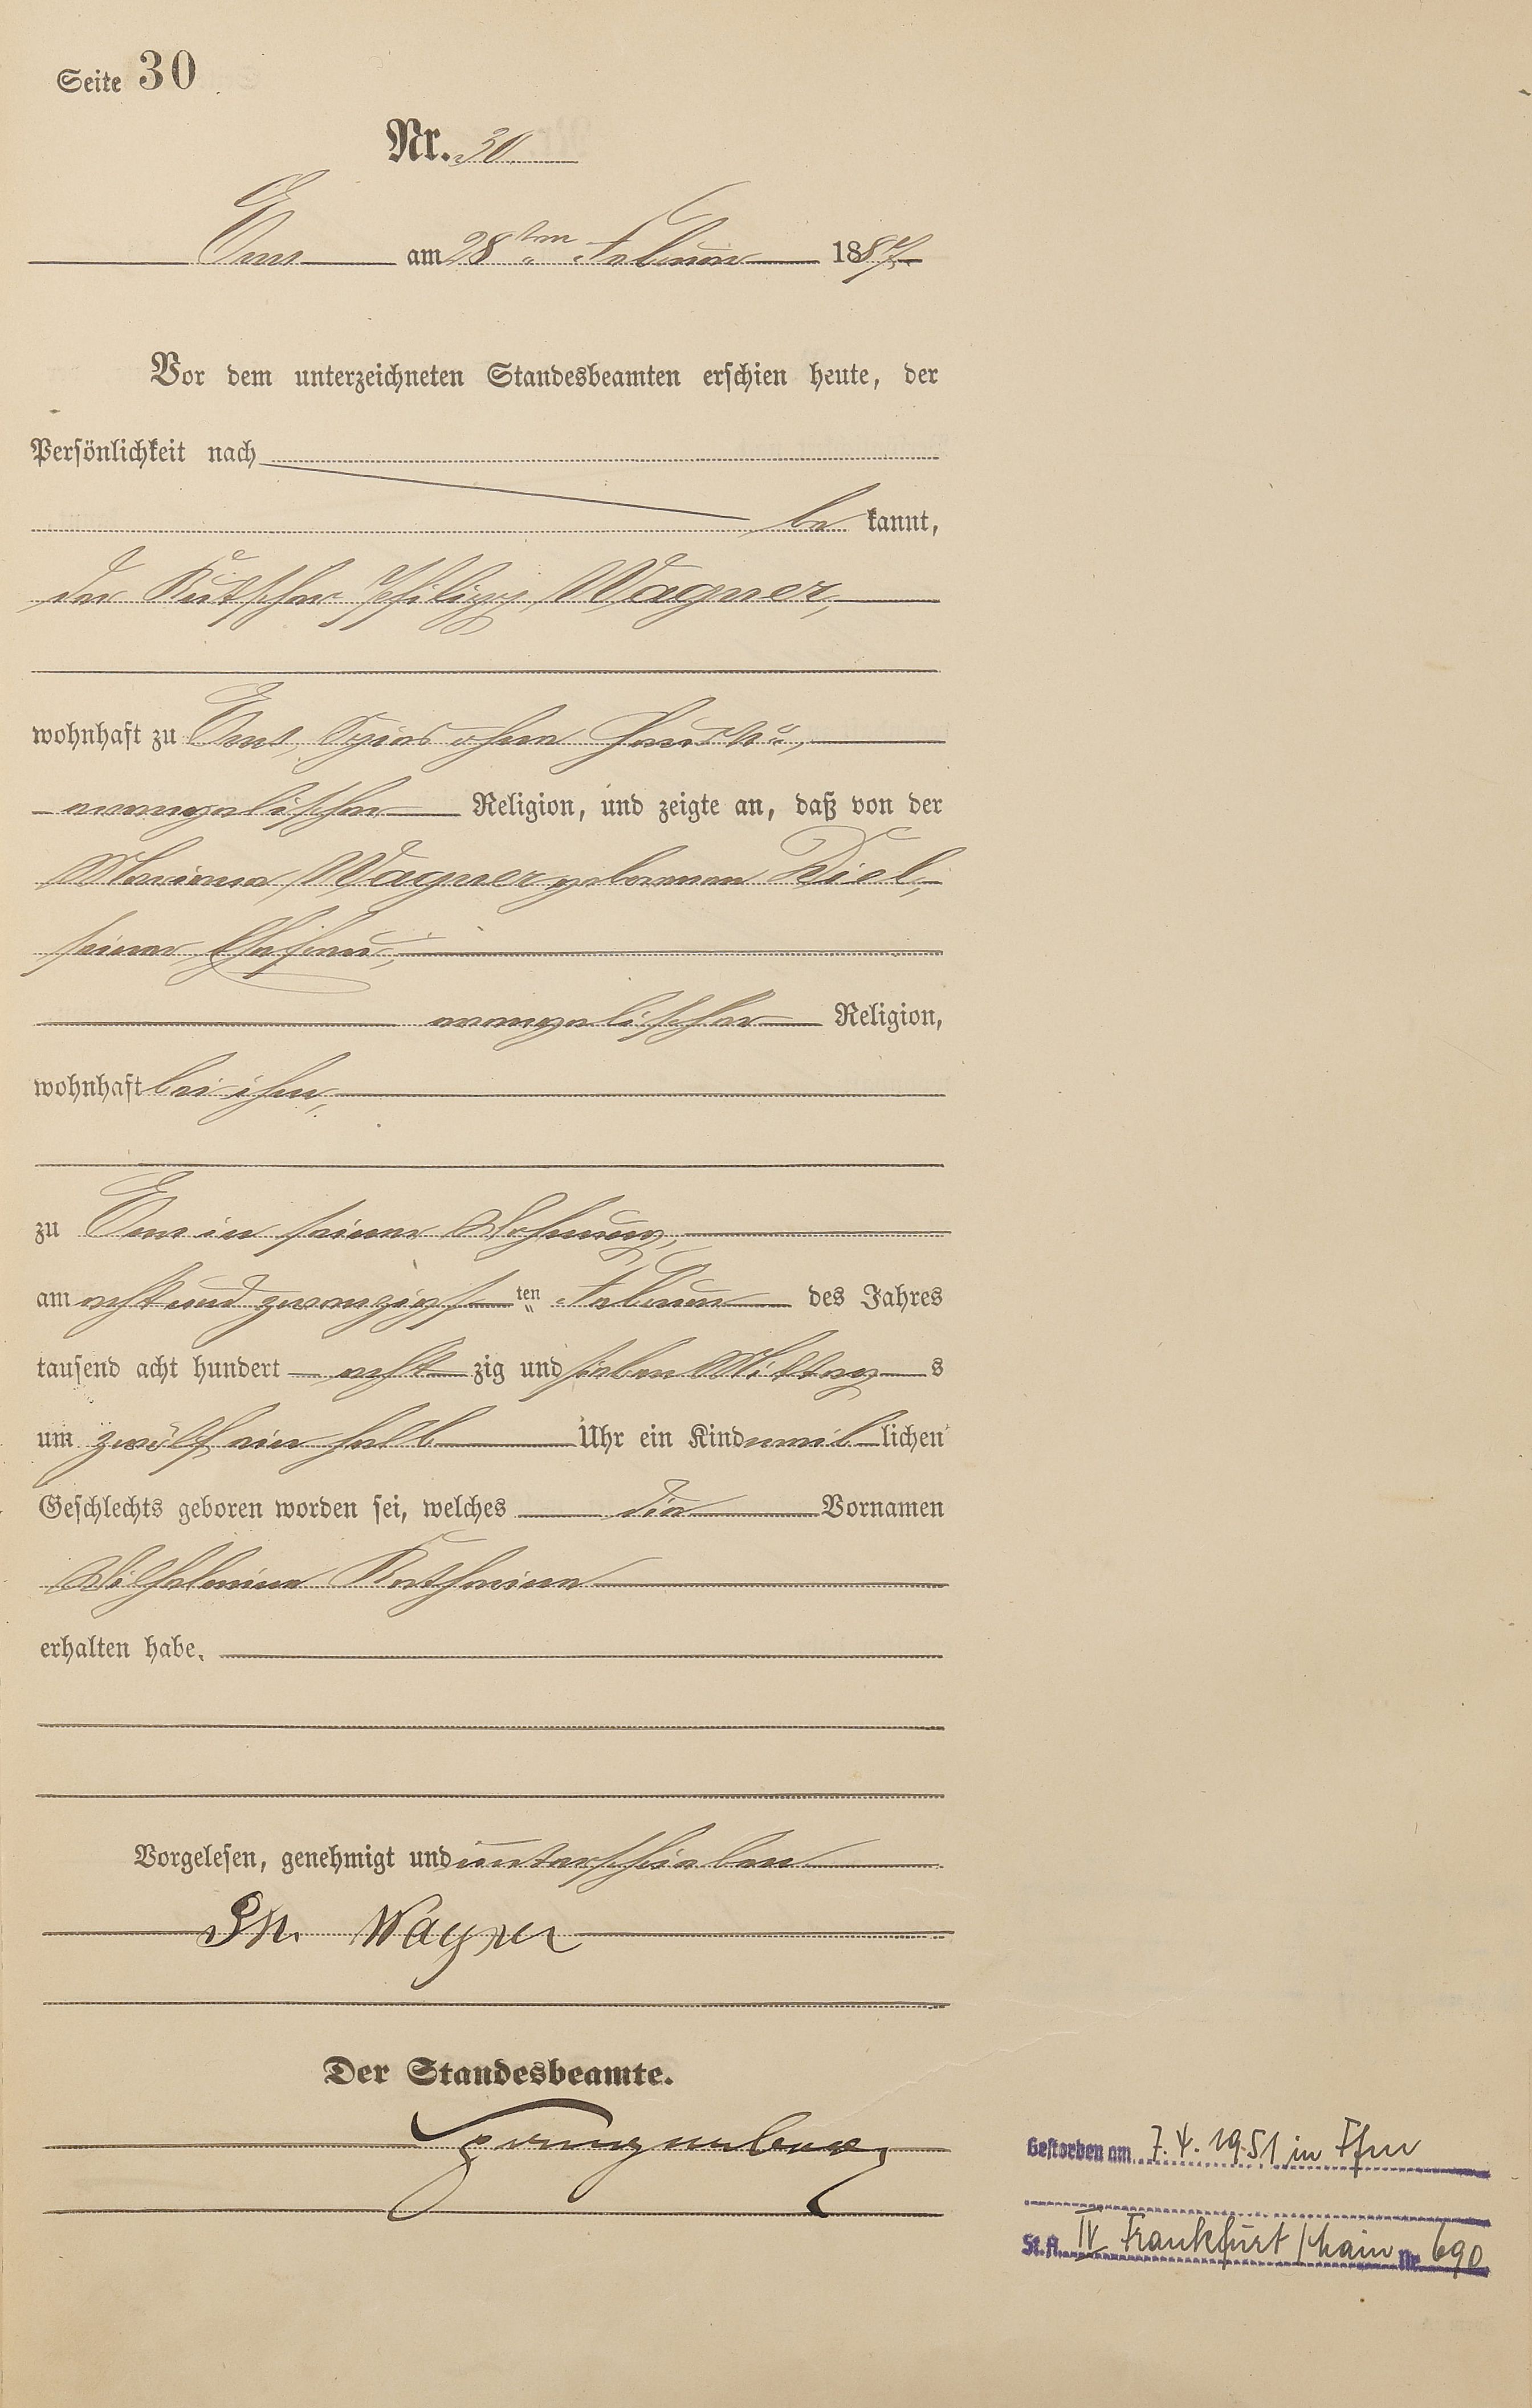 Seite 30
Nr. 30.
Ems am 28ten Februar 1887.
Vor dem unterzeichneten Standesbeamten erschien heute, der
Persönlichkeit nach
be kannt,
der Kutscher Philipp Wagner,
wohnhaft zu Ems, Spies ohne Haus No.,
evangelischer Religion, und zeigte an, daß von der
Mariana Wagner geborenen Diel,
seiner Ehefrau,
evangelischer Religion,
wohnhaft bei ihm,
zu Ems in seiner Wohnung,
am acht und zwanzigsten Februar des Jahres
tausend acht hundert acht zig und sieben Mittags
um zwölf ein halb Uhr ein Kind weiblichen
Geschlechts geboren worden sei, welches die Vornamen
Wilhelmine Katharina
erhalten habe.
Vorgelesen, genehmigt und unterschrieben
Ph. Wagner
Der Standesbeamte.
Gestorben am 7.4.1951 in Ffm
St.A. IV Frankfurt/Main Nr. 690